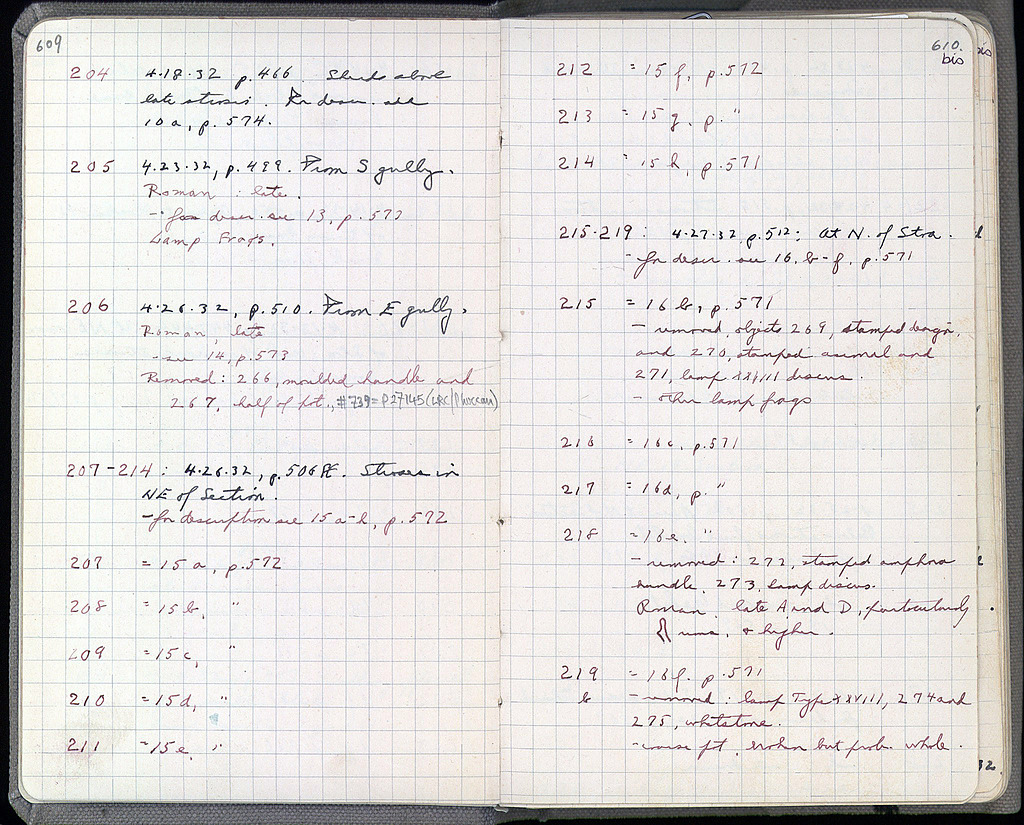 609
204 4.18.32 p.466. Sherds above
late stroses. For descr. see
10a, p. 574.
205 4.23.32, p.499. From S gully.
Roman : late.
- for descr. see 13, p. 573
Lamp Frags.
206 4.26.32, p.510. From E gully.
Roman, late
- see 14, p.573
Removed: 266, moulded handle and
267, half of pot., #739=P27145 (LRC/Phocean)
207-214: 4.26.32, p.506 ff. Stroses in
NE of Section.
- for description see 15 a-h, p. 572
207 = 15 a, p.572
208 = 15 b, "
209 = 15 c, "
210 = 15 d, "
211 = 15 e, "
610.
bis
212 = 15 f, p.572
213 = 15 g, p. "
214 = 15 h, p.571
215-219: 4.27.32, p.512: At N. of Stoa.
- for descr. see 16, b-f, p.571
215 = 16 b, p.571
- removed, objects 269, stamped design,
and 270, stamped animal and
271, lamp XXVIII discus.
- other lamp frags
216 = 16c, p.571
217 = 16d, p. "
218 = 16e. "
- removed: 272, stamped amphora
handle, 273, lamp discus.
Roman late A and D, particularly
rims, & higher.
219 = 16f. p.571
b - removed: lamp Type XXVIII, 274 and
275, whetstone.
- coarse pt, broken but prob. whole.